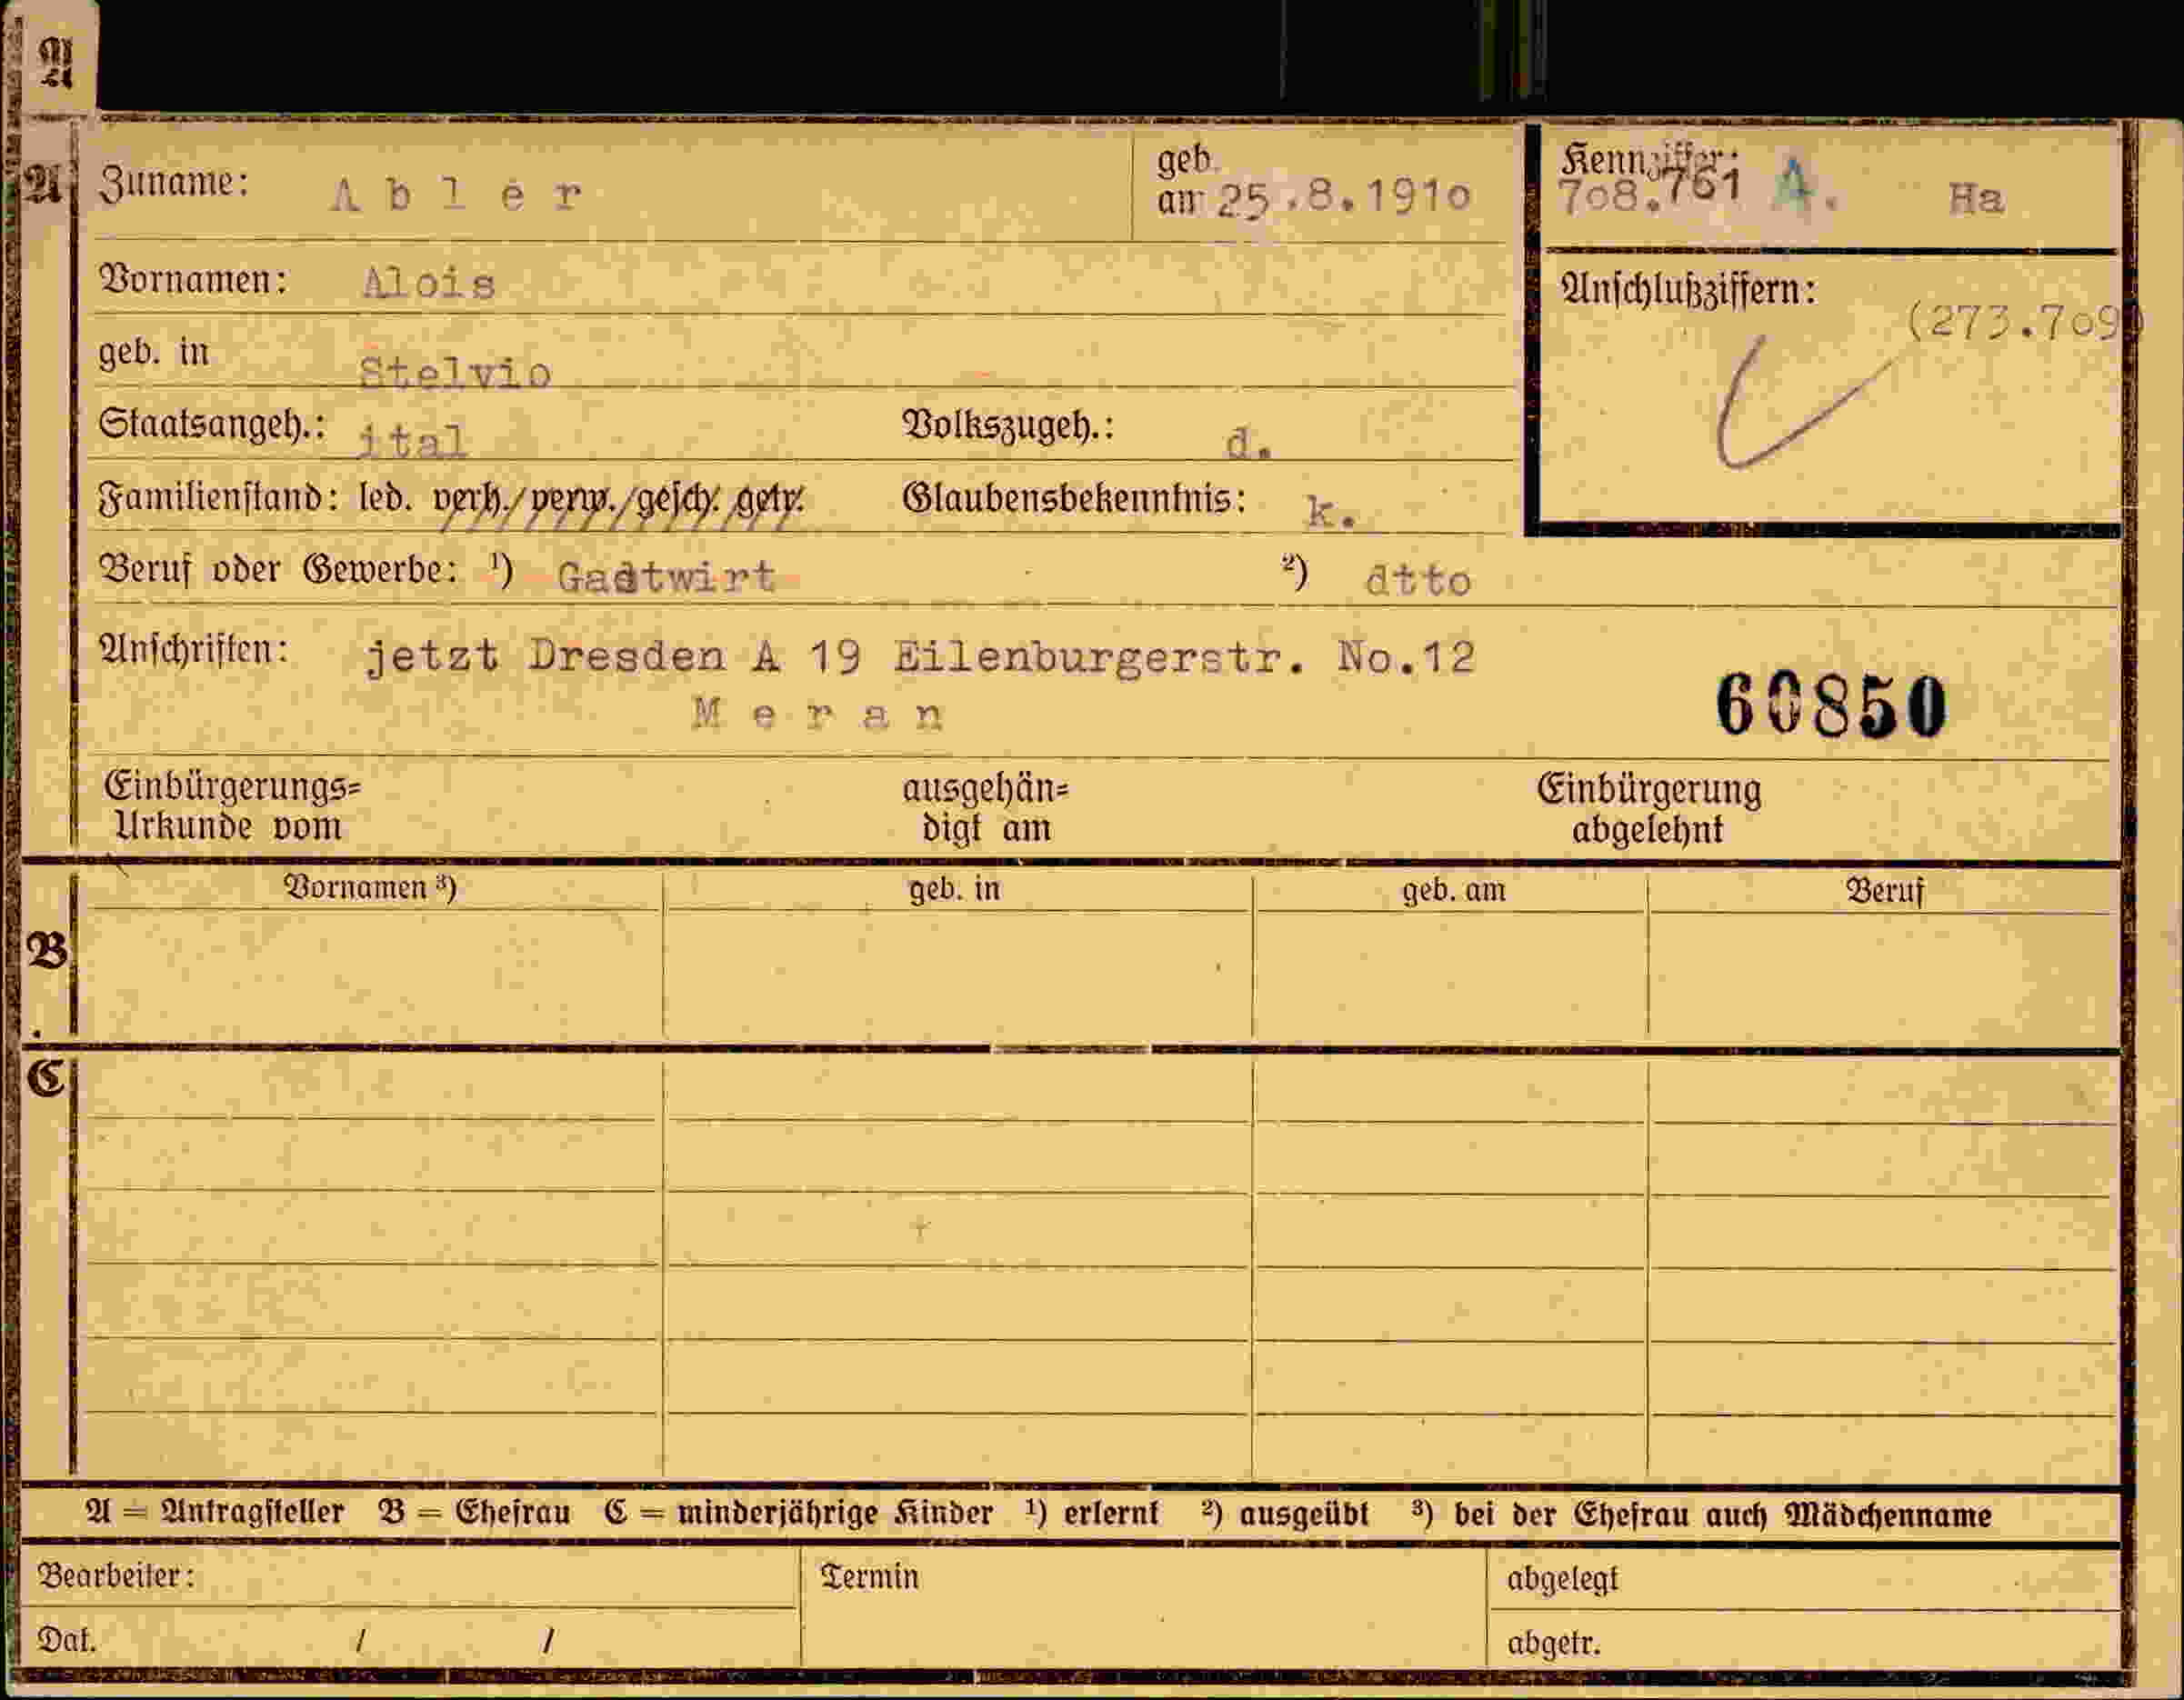 A
A Zuname: A b l e r geb. am 25.8.1910 Kennziffer: 708.761 A. Ha
Vornamen: Alois
Anschlußziffern: (273.709)
geb. in Stelvio
Staatsangeh.: ital Volkszugeh.: d.
Familienstand: led. verh./verw./gesch. getr. Glaubensbekenntnis: k.
Beruf oder Gewerbe: ¹) Gastwirt ²) dtto
Anschriften: jetzt Dresden A 19 Eilenburgerstr. No.12
M e r a n
60850
Einbürgerungs=
Urkunde vom
ausgehän=
digt am
Einbürgerung
abgelehnt
Vornamen ³) geb. in geb. am Beruf
B
C
A = Antragsteller B = Ehefrau C = minderjährige Kinder ¹) erlernt ²) ausgeübt ³) bei der Ehefrau auch Mädchenname
Bearbeiter: Termin abgelegt
Dat. / / abgetr.